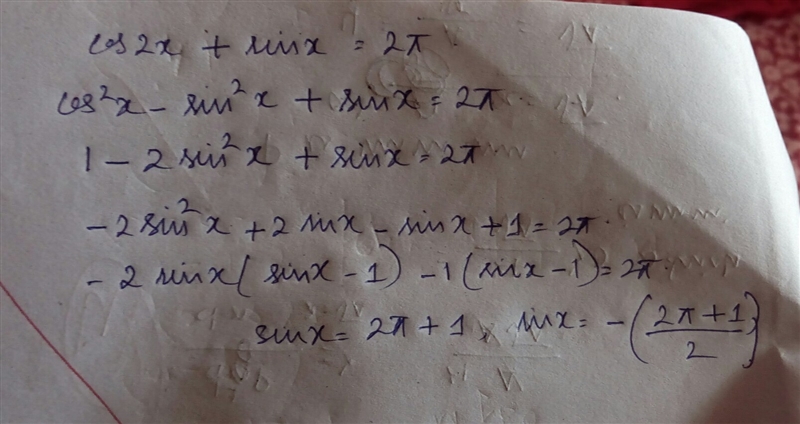 cos2x + sinx = 2π
cos²x - sin²x + sinx = 2π
1 - 2 sin²x + sinx = 2π
- 2 sin²x + 2 sinx - sinx + 1 = 2π
- 2 sinx ( sinx - 1 ) - 1 ( sinx - 1 ) = 2π
sinx = 2π + 1 , sinx = - ( (2π + 1) / 2 )